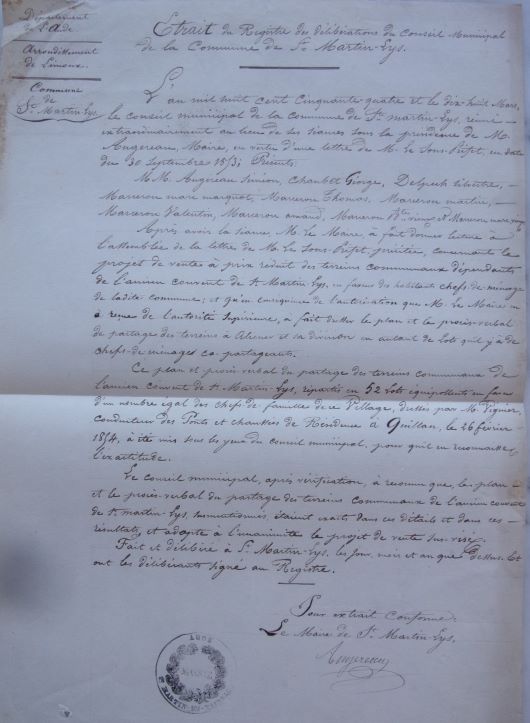 Département
de l'Aude
Arrondissement
de Limoux.
Commune
de
St Martin-Lys.
Extrait du Registre des délibérations du Conseil Municipal
de la Commune de St Martin-Lys.
L'an mil huit cent cinquante quatre et le dix huit Mars,
le conseil municipal de la commune de St martin-Lys, réuni
extraordinairement au lieu de ses séances sous la présidence de M.
Augereau, Maire, en vertu d'une lettre de M. le Sous-Préfet, en date
du 30 Septembre 1853; Présents:
M.M. Augereau Simion, Chaubet George, Delpech
Marceron marc marquot, Marceron Thomas, Marceron martin,
Marceron Valentin, Marceron amand, Marceron et Marceron marc
Après avoir la séance, M. le Maire à fait donner lecture à
l'assemblée de la lettre de M. le Sous-Préfet précitée, concernant le
projet de vente à prix réduit des terreins communaux dépendants
de l'ancien couvent de St Martin-Lys, en faveur des habitants chefs-de-ménage
de ladite commune; et qu'en conséquence de l'autorisation que M. le Maire en
à reçue de l'autorité Supérieure, à fait dresser le plan et le procès-verbal
de partage des terreins à aliéner et sa division en autant de Lots qu'il y'à de
chefs-de-ménages co-partageants.
Ce plan et procès verbal du partage des terreins communaux de
l'ancien couvent de St Martin-Lys, répartis en 52 Lots équipollents en faveur
d'un nombre égal des chefs-de-familles de ce Village, dressés par M. Vignier,
conducteur des Ponts et chaussées de Résidence à Quillan, le 26 février
1854, à été mis sous les yeux du conseil municipal, pour qu'il en reconnaisse
l'exactitude.
Le conseil municipal, après vérification, à reconnu que les plan
et le procès-verbal du partage des terreins communaux de l'ancien couvent
de St martin-Lys, susmentionnés, étaient exacts dans ces détails et dans ces
résultats, et adopte à l'unanimité le projet de vente sus-visé.
Fait et délibéré à St Martin-Lys, les jour, mois et an que dessus. Et
ont les délibérants signé au Registre.
Pour extrait Conforme:
Le Maire de St Martin-Lys.
Augereau
AUDE
MAIRIE